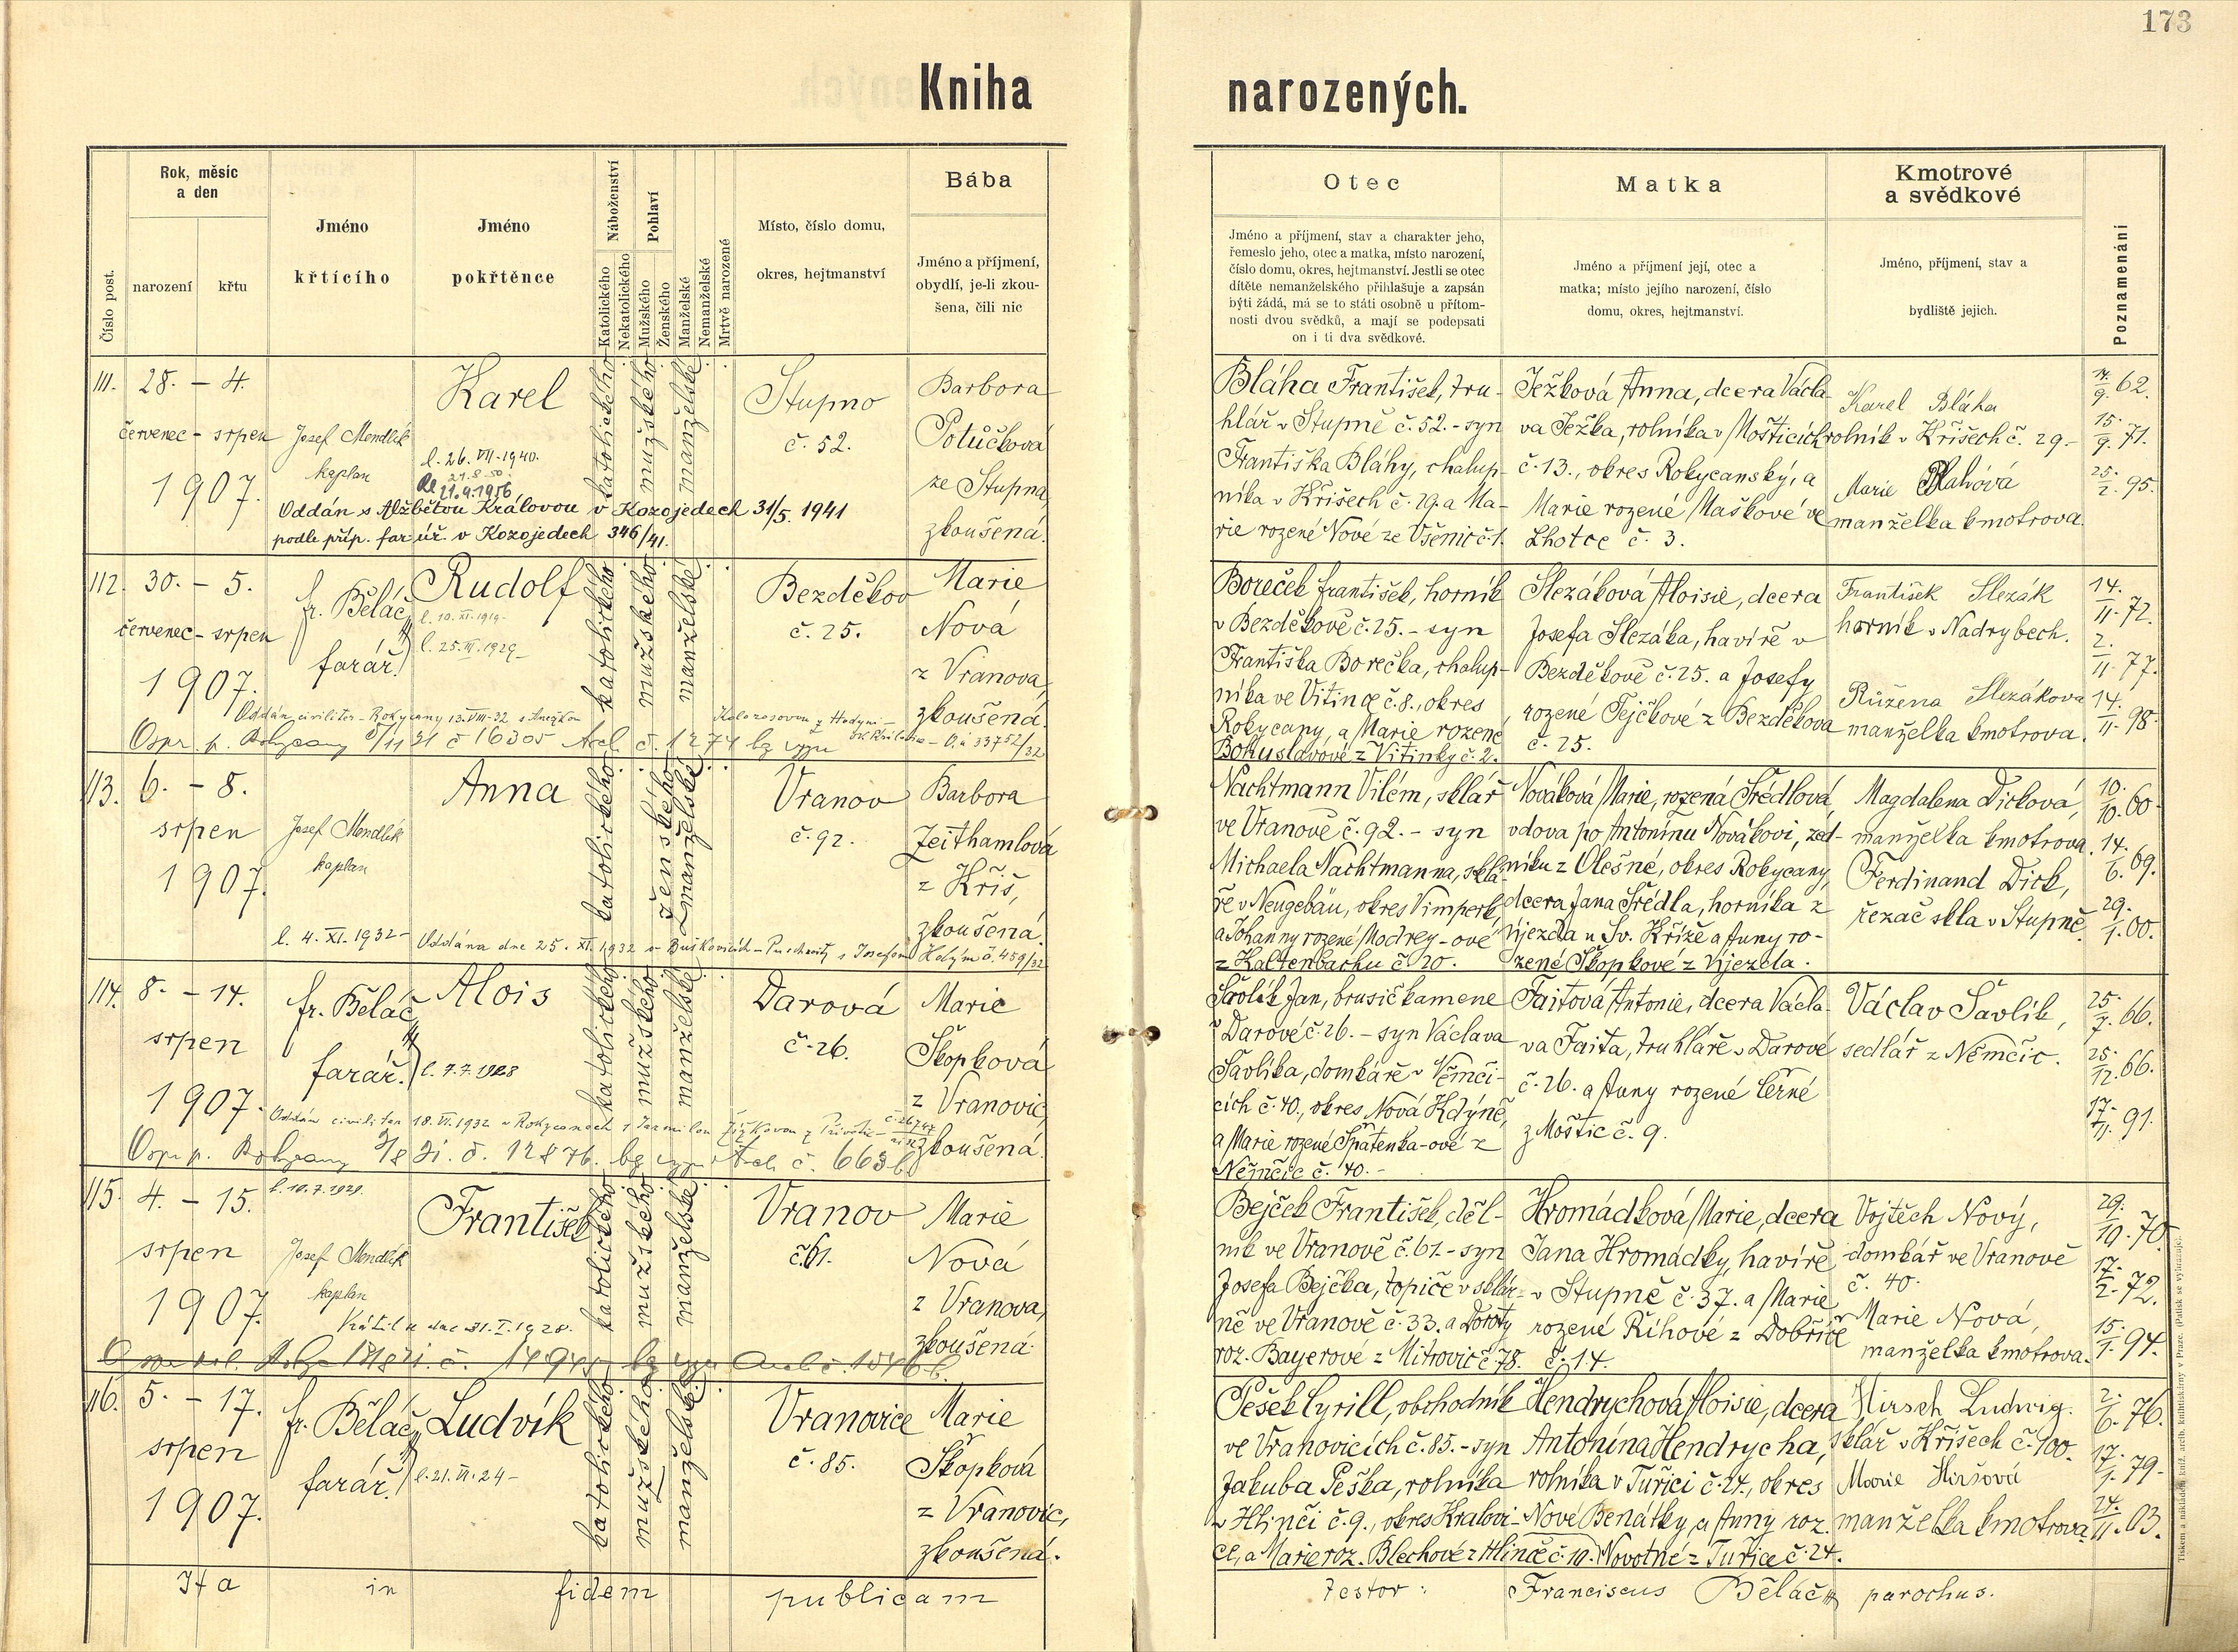 173
Kniha narozených.
Číslo post.
Rok, měsíc
a den
narození
křtu
Jméno
křtícího
Jméno
pokřtěnce
Náboženství
Katolického
Nekatolického
Pohlaví
Mužského
Ženského
Manželské
Nemanželské
Mrtvě narozené
Místo, číslo domu,
okres, hejtmanství
Bába
Jméno a příjmení,
obydlí, je-li zkou-
šena, čili nic
Otec
Jméno a příjmení, stav a charakter jeho,
řemeslo jeho, otec a matka, místo narození,
číslo domu, okres, hejtmanství. Jestli se otec
dítěte nemanželského přihlašuje a zapsán
býti žádá, má se to státi osobně u přítom-
nosti dvou svědků, a mají se podepsati
on i ti dva svědkové.
Matka
Jméno a příjmení její, otec a
matka; místo jejího narození, číslo
domu, okres, hejtmanství.
Kmotrové
a svědkové
Jméno, příjmení, stav a
bydliště jejich.
Poznamenání
111.
28. - 4.
červenec - srpen
1907.
Josef Mendlík
kaplan
Karel
l. 26. VII. 1940.
21.9.1956
Oddán s Alžbětou Královou v Kozojedech 31/5. 1941
podle příp. far. úř. v Kozojedech 346/41.
katolického
mužského
manželské
Stupno
č. 52.
Barbora
Potůčková
ze Stupna,
zkoušená.
Bláha František, tru-
hlář v Stupně č. 52. - syn
Františka Bláhy, chalup-
níka v Křišech č. 29. a Ma-
rie rozené Nové ze Všenic č. 1.
Ježková Anna, dcera Václa-
va Ježka, rolníka v Mošticích
č. 13., okres Rokycanský, a
Marie rozené Maškové ve
Lhotce č. 3.
Karel Bláha
rolník v Křišech č. 29.-
Marie Blahová
manželka kmotrova.
14./9. 62.
15./9. 71.
25./2. 95.
112.
30. - 5.
červenec - srpen
1907.
fr. Běláč,
farář.
Rudolf
l. 10. XI. 1919-
l. 25. III. 1929-
Oddán civiliter - Rokycany 13. VIII-32 s Anežkou
katolického
mužského
manželské
Bezděkov
č. 25.
Marie
Nová
z Vranova,
zkoušená.
Boreček František, horník
v Bezděkově č. 25. - syn
Františka Borečka, chalup-
níka ve Vitince č. 8., okres
Rokycany, a Marie rozené
Bohuslavové z Vitinky č. 2.
Slezáková Aloisie, dcera
Josefa Slezáka, havíře v
Bezděkově č. 25. a Josefy
rozené Tejčkové z Bezděkova
č. 25.
František Slezák
horník v Nadrybech.
Růžena Slezákova
manželka kmotrova.
14./II. 72.
2./II. 77.
14./II. 98.
113.
6. - 8.
srpen
1907.
Josef Mendlík
kaplan
Anna
l. 4. XI. 1932-
Oddána dne 25. XI. 1932 v Buškovicích - s Josefem č. 459/32
katolického
ženského
manželské
Vranov
č. 92.
Barbora
Zeithamlová
z Křiš,
zkoušená.
Nachtmann Vilém, sklář
ve Vranově č. 92. - syn
Michaela Nachtmanna, sklá-
ře v Neugebäu, okres Vimperk,
a Johanny rozené Modrey-ové
z Kaltenbachu č. 20.
Nováková Marie, rozená Srédlová,
vdova po Antonínu Novákovi, zed-
níku z Olešné, okres Rokycany,
dcera Jana Srédla, horníka z
Újezda u Sv. Kříže a Anny ro-
zené Skopkové z Újezda.
Magdalena Dicková,
manželka kmotrova.
Ferdinand Dick,
řezač skla v Stupně.
10./10. 60.
14./6. 69.
29./1. 00.
114.
8. - 14.
srpen
1907.
fr. Běláč
farář.
Alois
l. 7. 7. 1928
Oddán civiliter 18. VI. 1932 v Rokycanech s Jarmilou Žižkovou
katolického
mužského
manželské
Darová
č. 26.
Marie
Škopková
z Vranovic,
zkoušená.
Šavlík Jan, brusič kamene
v Darové č. 26. - syn Václava
Šavlíka, domkáře v Němči-
cích č. 40., okres Nová Kdýně,
a Marie rozené Spatenka-ové z
Němčic č. 40. -
Fajtová Antonie, dcera Václa-
va Fajta, truhláře v Darové
č. 26. a Anny rozené Černé
z Moštic č. 9.
Václav Šavlík,
sedlář z Němčic.
25./7. 66.
25./12. 66.
17./II. 91.
115.
4. - 15.
srpen
1907.
l. 10. 7. 1929.
Josef Mendlík
kaplan
František
dne 31. I. 1928.
katolického
mužského
manželské
Vranov
č. 61.
Marie
Nová
z Vranova,
zkoušená.
Bejček František, děl-
ník ve Vranově č. 61. - syn
Josefa Bejčka, topiče v sklár-
ně ve Vranově č. 33. a Doroty
roz. Bayerové z Mitrovic č. 78.
Hromádková Marie, dcera
Jana Hromádky, havíře
v Stupně č. 37. a Marie
rozené Říhové z Dobříče
č. 14.
Vojtěch Nový,
domkář ve Vranově
č. 40.
Marie Nová,
manželka kmotrova.
29./10. 70.
17./2. 72.
15./1. 94.
116.
5. - 17.
srpen
1907.
fr. Běláč
farář.
Ludvík
l. 21. VI. 24-
katolického
mužského
manželské
Vranovice
č. 85.
Marie
Škopková
z Vranovic,
zkoušená.
Pešek Cyrill, obchodník
ve Vranovicích č. 85. - syn
Jakuba Peška, rolníka
v Hlinči č. 9., okres Kralovi-
ce, a Marie roz. Blechové z Hlinče č. 10.
Hendrychová Aloisie, dcera
Antonína Hendrycha,
rolníka v Tuřici č. 24., okres
Nové Benátky, a Anny roz.
Novotné z Tuřice č. 24.
Hirsch Ludwig.
sklář v Křišech č. 100.
Marie Hiršová
manželka kmotrova.
2./6. 76.
17./1. 79.
24./II. 03.
Ita in fidem publicam testor: Franciscus Běláč parochus.